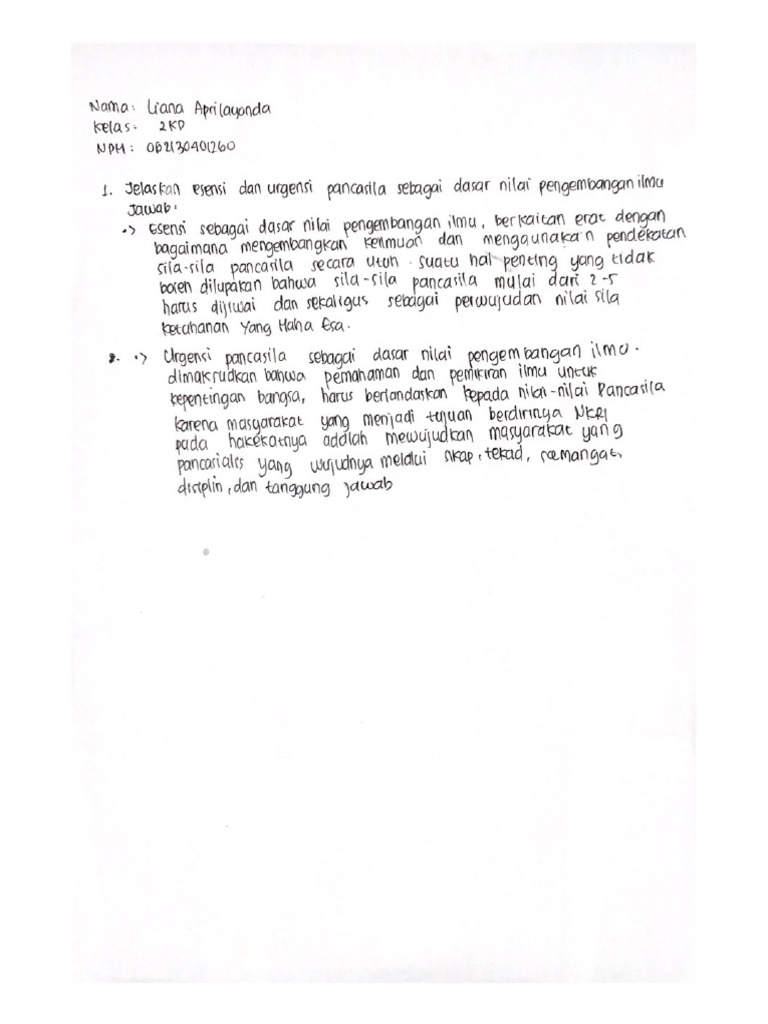 Nama: Liana Aprilayonda
Kelas: 2KD
NPM: 062130401260
1. Jelaskan esensi dan urgensi pancasila sebagai dasar nilai pengembangan ilmu
Jawab:
•> Esensi sebagai dasar nilai pengembangan ilmu, berkaitan erat dengan
bagaimana mengembangkan keilmuan dan menggunakan pendekatan
sila-sila pancasila secara utuh. suatu hal penting yang tidak
boleh dilupakan bahwa sila-sila pancasila mulai dari 2-5
harus dijiwai dan sekaligus sebagai perwujudan nilai sila
ketuhanan Yang Maha Esa.
•> Urgensi pancasila sebagai dasar nilai pengembangan ilmu.
dimaksudkan bahwa pemahaman dan pemikiran ilmu untuk
kepentingan bangsa, harus berlandaskan kepada nilai-nilai Pancasila
karena masyarakat yang menjadi tujuan berdirinya NKRI
pada hakekatnya adalah mewujudkan masyarakat yang
pancasialis yang wujudnya melalui sikap, tekad, semangat,
disiplin, dan tanggung jawab